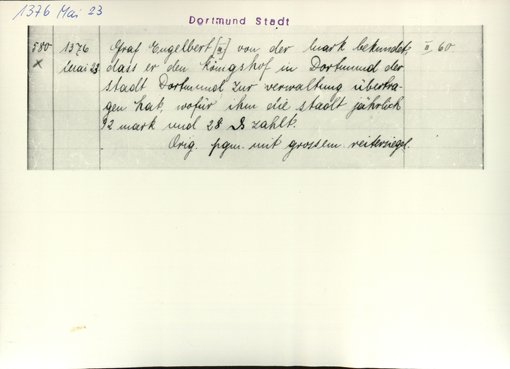 1376 Mai 23
Dortmund Stadt
580 1376 Graf Engelbert [II] von der Mark bekundet, II 60
x Mai 23 dass er den Königshof in Dortmund der
stadt Dortmund zur verwaltung übertra-
gen hat, wofür ihm die stadt jährlich
92 mark und 28 ₰ zahlt.
Orig. pgm. mit grossem reitersiegel.